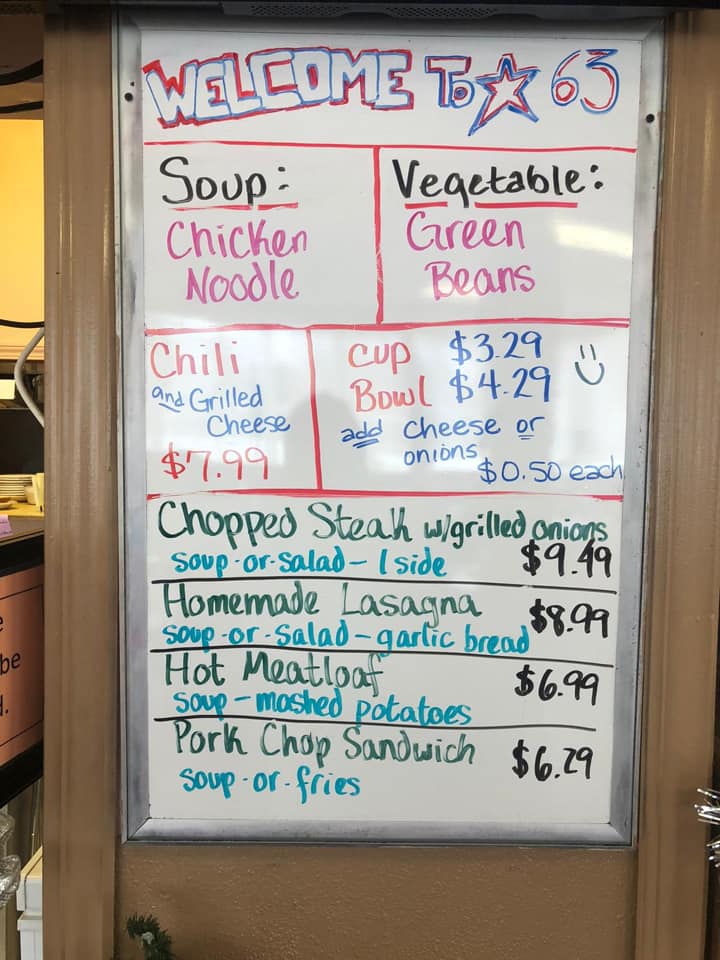 WELCOME To ☆ 63
Soup:
Chicken
Noodle
Vegetable:
Green
Beans
Chili
and Grilled
Cheese
$7.99
cup $3.29
Bowl $4.29
add cheese or
onions
$0.50 each
Chopped Steak w/grilled onions
soup-or-salad - 1 side $9.49
Homemade Lasagna $8.99
soup-or-salad - garlic bread
Hot Meatloaf $6.99
soup - mashed potatoes
Pork Chop Sandwich $6.29
soup-or-fries
be